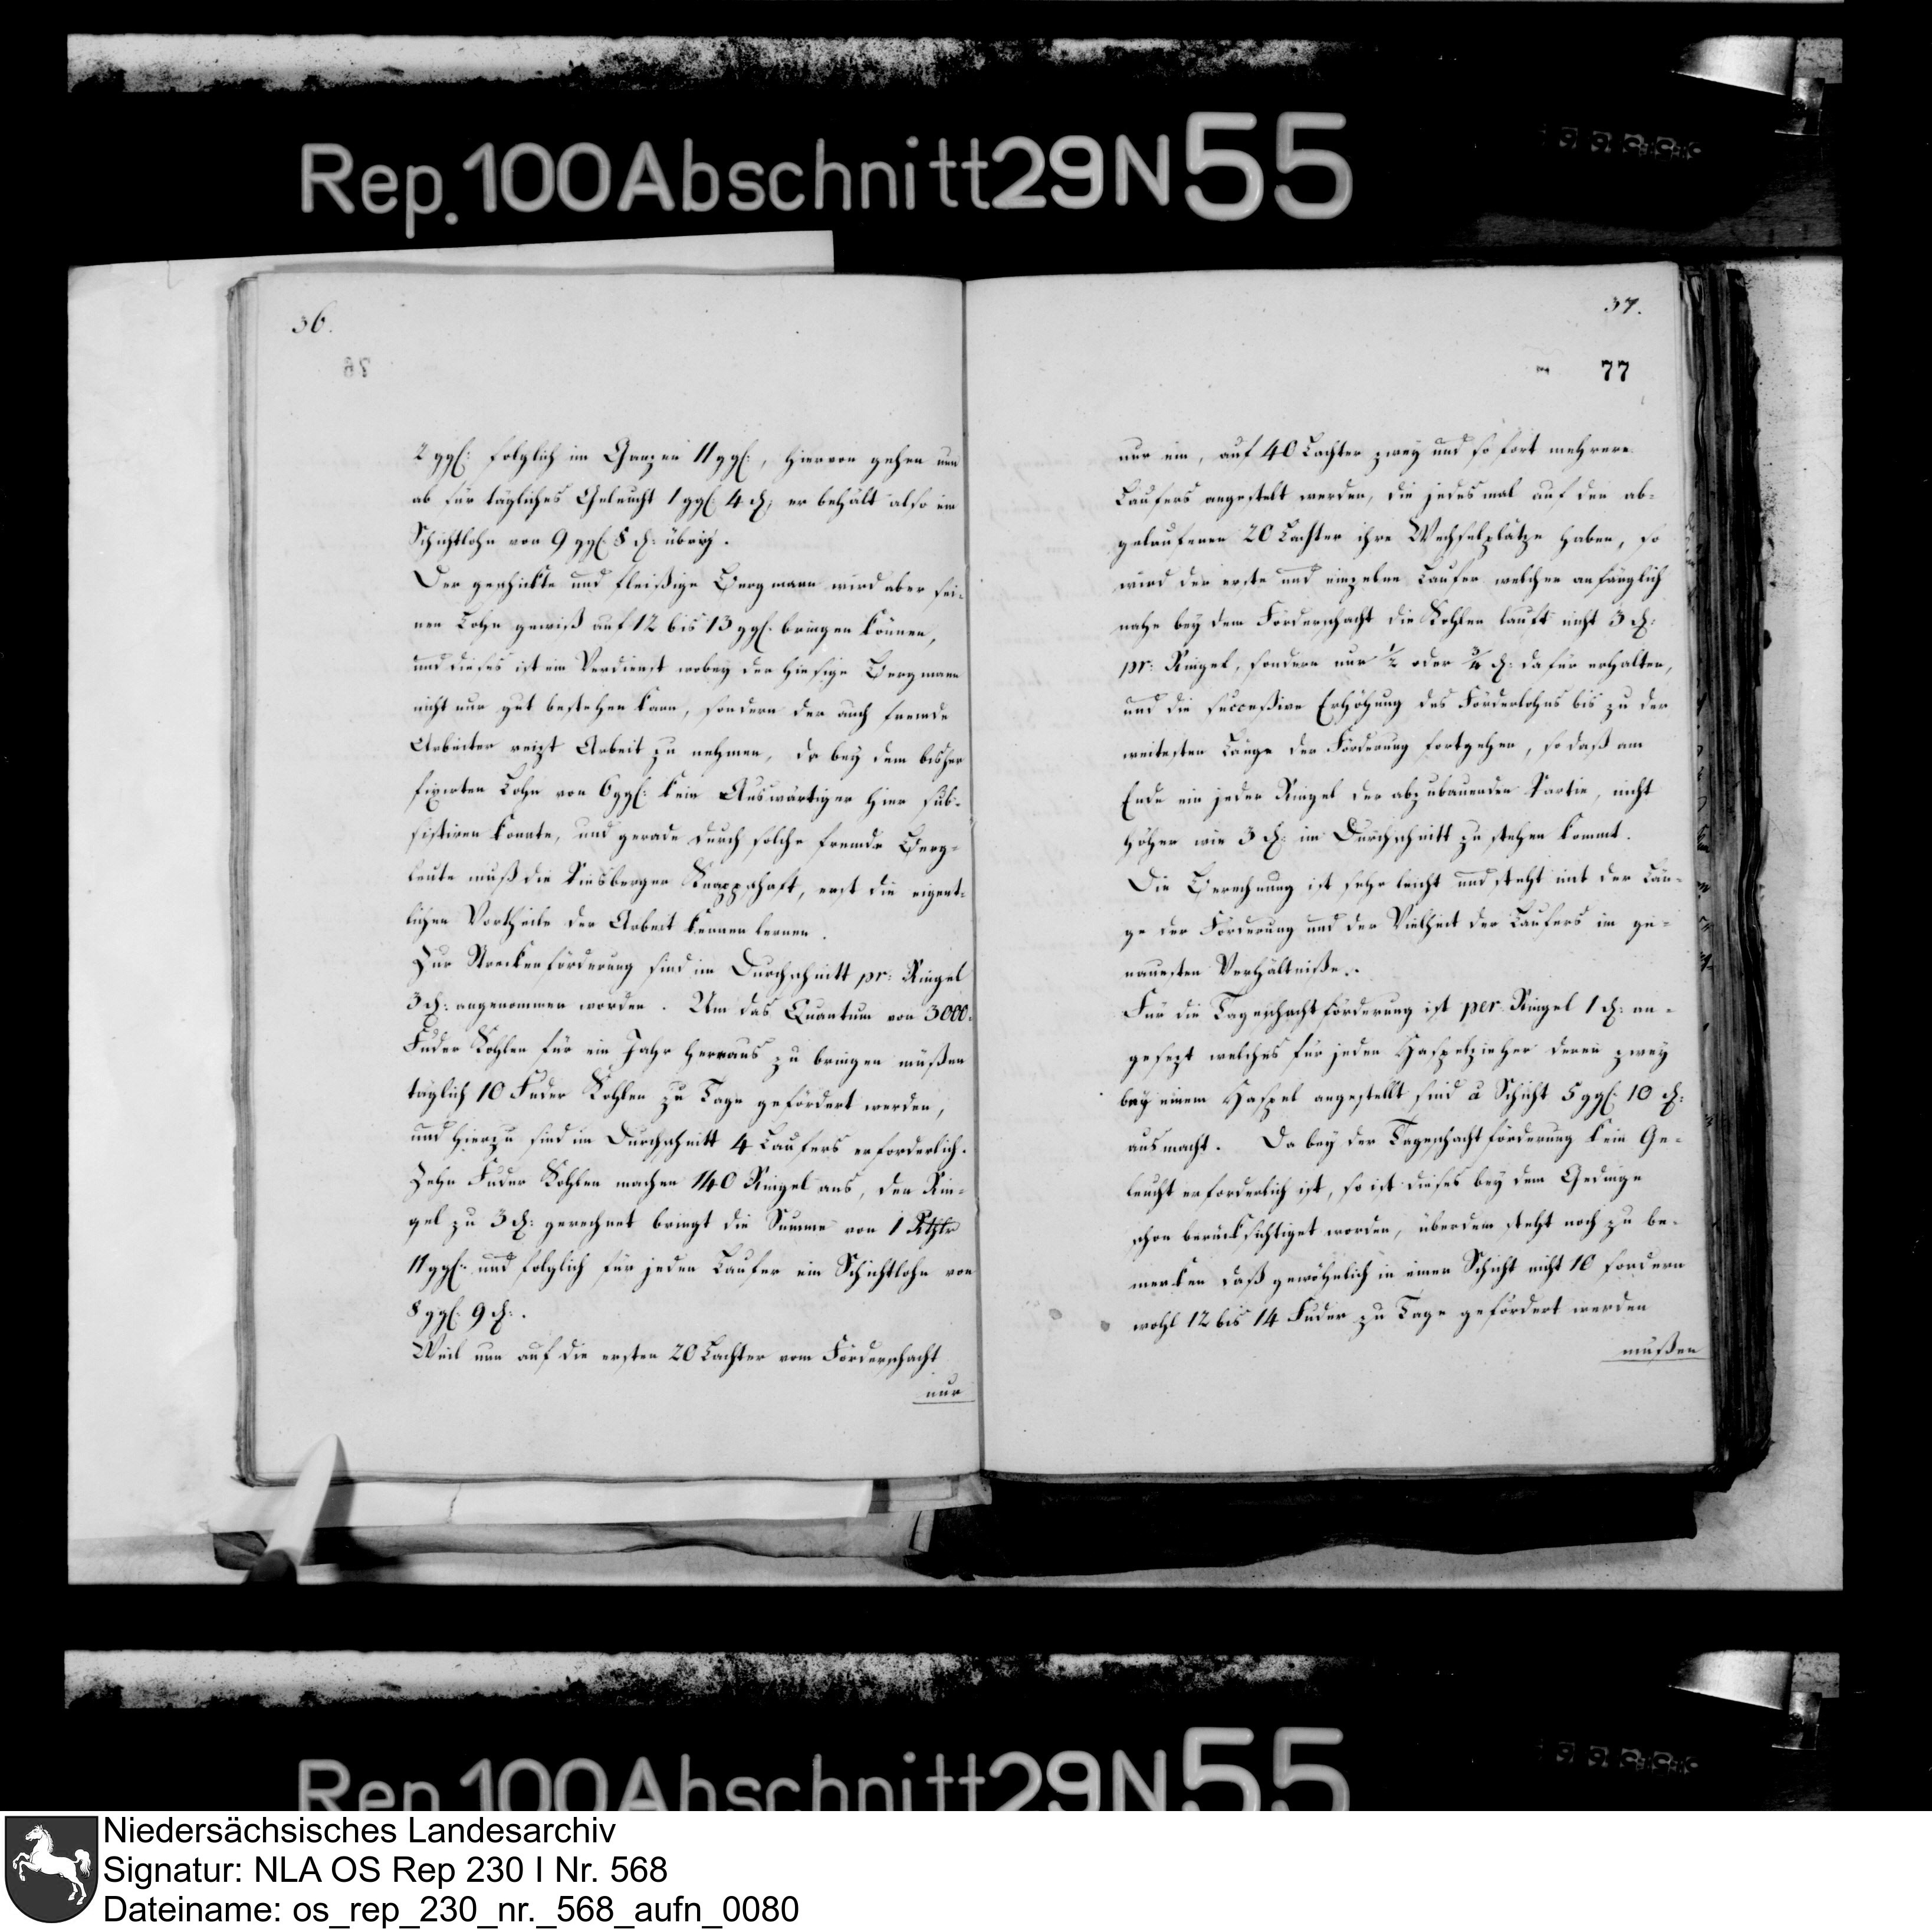 Rep. 100 Abschnitt 29 N 55
36.
2 ggl: folglich im Ganzen 11 ggl:, hiervon gehen nun
ab für tägliches Geleucht 1 ggl. 4 d; er behält also ein
Schichtlohn von 9 ggl. 8 d: übrig.
Der geschickte und fleißige Bergmann wird aber sei-
nen Lohn gewiß auf 12 bis 13 ggl. bringen können,
und dieses ist ein Verdienst wobey der hiesige Bergmann
nicht nur gut bestehen kann, sondern der auch fremde
Arbeiter reizt Arbeit zu nehmen, da bey dem bisher
fixirten Lohn von 6 ggl: kein Auswärtiger hier sub-
sistiren konnte, und gerade durch solche fremde Berg-
leute muß die Piesberger Knappschaft, erst die eigent-
lichen Vortheile der Arbeit kennen lernen.
Zur Streckenförderung sind im Durchschnitt pr: Ringel
3 d: angenommen worden. Um das Quantum von 3000.
Fuder Kohlen für ein Jahr heraus zu bringen müßen
täglich 10 Fuder Kohlen zu Tage gefördert werden,
und hierzu sind im Durchschnitt 4 Laufers erforderlich.
Zehn Fuder Kohlen machen 140 Ringel aus, den Rin-
gel zu 3 d: gerechnet bringt die Summe von 1 Rthlr
11 ggl: und folglich für jeden Laufer ein Schichtlohn von
8 ggl. 9 d:.
Weil nun auf die ersten 20 Lachter vom Förderschacht
nur
37.
77
nur ein, auf 40 Lachter zwey und so fort mehrere
Laufers angestelt werden, die jedesmal auf den ab-
gelaufenen 20 Lachter ihre Wechselplätze haben, so
wird der erste und einzelne Laufer welcher anfänglich
nahe bey dem Förderschacht die Kohlen lauft nicht 3 d:
pr: Ringel, sondern nur 1/2 oder 3/4 d: dafür erhalten,
und die succeßive Erhöhung des Förderlohns bis zu der
weitesten Länge der Förderung fortgehen, so daß am
Ende ein jeder Ringel der abzubauenden Partie, nicht
höher wie 3 d: im Durchschnitt zu stehen kommt.
Die Berechnung ist sehr leicht und steht mit der Län-
ge der Förderung und der Vielheit der Laufers im ge-
nauesten Verhältniße.
Für die Tageschachtförderung ist per Ringel 1 d: an-
gesezt welches für jeden Haspelzieher deren zwey
bey einem Haspel angestellt sind à Schicht 5 ggl. 10 d:
ausmacht. Da bey der Tageschachtförderung kein Ge-
leucht erforderlich ist, so ist dieses bey dem Gedinge
schon berücksichtiget worden, überdem steht noch zu be-
merken daß gewöhnlich in einer Schicht nicht 10 sondern
wohl 12 bis 14 Fuder zu Tage gefördert werden
müßen
Rep. 100 Abschnitt 29 N 55
Niedersächsisches Landesarchiv
Signatur: NLA OS Rep 230 I Nr. 568
Dateiname: os_rep_230_nr._568_aufn_0080